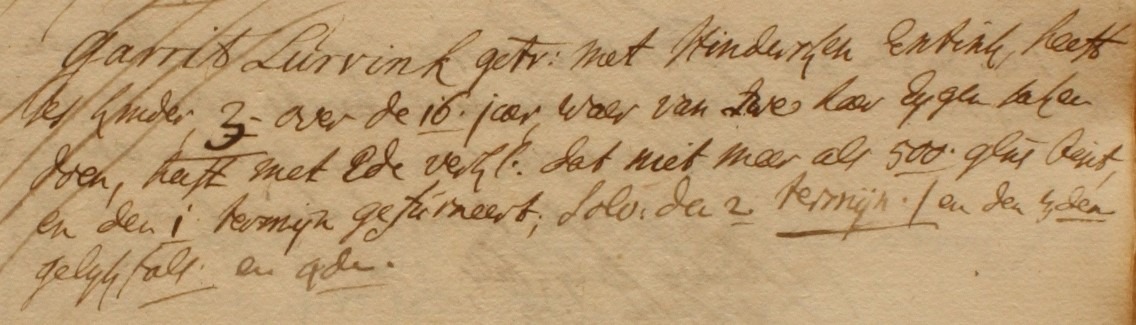 Garrit Lurvink getr: met Hindersken Entink, heeft
ses kinder, 3 - over de 16 jaer, waer van twe haer Eygen saken
doen, heeft met Ede verkl: dat niet meer als 500. glns besit,
en den 1 termijn gefurneert, solv: den 2 termijn. / en den 3den
gelykfals. en 4de.